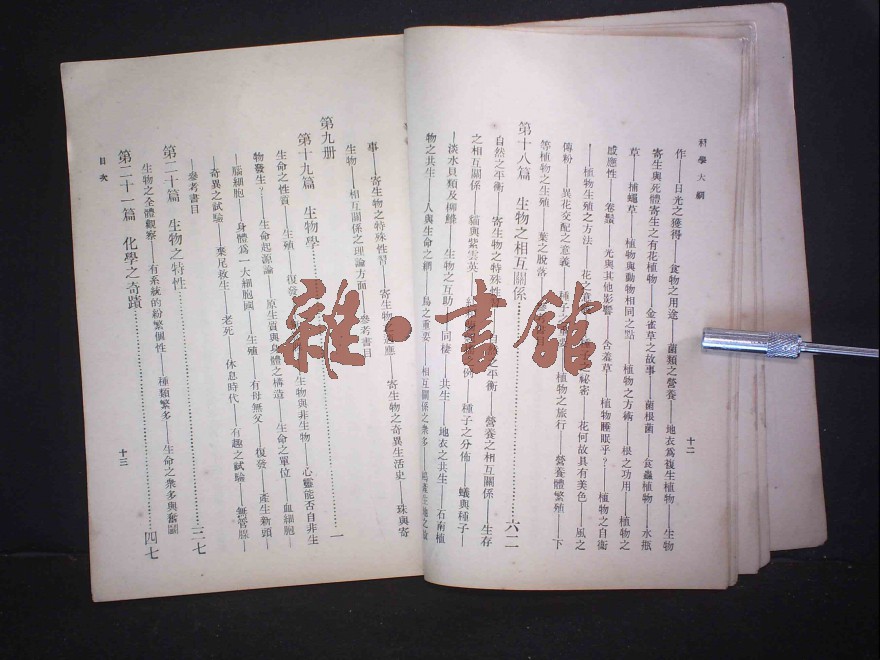 科學大綱
作——日光之獲得——食物之用途——菌類之營養——地衣爲複生植物——生物
寄生與死體寄生之有花植物——金雀草之故事——菌根菌——食蟲植物——水瓶
草——捕蠅草——植物與動物相同之點——植物之方術——根之功用——植物之
感應性——卷鬚——光與其他影響——含羞草——植物睡眠乎？——植物之自衞
——植物生殖之方法——花之祕密——花何故具有美色——風之
傳粉——異花交配之意義——種子——植物之旅行——營養體繁殖——下
等植物之生殖——葉之脫落
第十八篇 生物之相互關係……六二
自然之平衡——寄生物之特殊性——之平衡——營養之相互關係——生存
之相互關係——貓與紫雲英——例——種子之分佈——蟻與種子——
——淡水貝類及柳鰷——生物之互助——同棲——共生——地衣之共生——石南植
物之共生——人與生命之網——鳥之重要——相互關係之衆多
十二
事——寄生物之特殊性習——寄生物之適應——寄生物之奇異生活史——珠與寄
生物——相互關係之理論方面——參考書目
第九册
第十九篇 生物學……一
生命之性質——生殖——復發——生物與非生物——心靈能否自非生
物發生？——生命起源論——原生質與身體之構造——生命之單位——血細胞——
腦細胞——身體爲一大細胞國——生殖——有母無父——復發——產生新頭——
奇異之試驗——棄尾救生——老死——休息時代——有趣之試驗——無管腺
——參考書目
第二十篇 生物之特性……三七
生物之全體觀察——有系統的紛繁個性——種類繁多——生命之衆多與奮鬭
第二十一篇 化學之奇蹟……四七
目次
十三
雜·書館